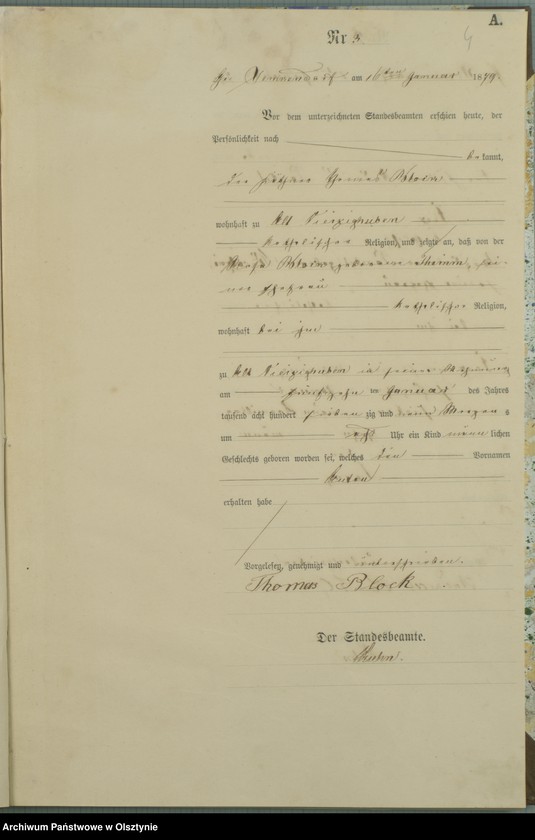 A.
Nr 3.
4
am 16ten Januar 1879.
Vor dem unterzeichneten Standesbeamten erschien heute, der
Persönlichkeit nach
bekannt,
der Thomas
wohnhaft zu Alt Vierzighuben
katholischer Religion, und zeigte an, daß von der
geborene
Ehefrau
katholischer Religion,
wohnhaft bei ihm
zu Alt Vierzighuben in seiner Wohnung
am fünfzehn ten Januar des Jahres
tausend acht hundert sieben zig und neun Morgen s
um Uhr ein Kind männ lichen
Geschlechts geboren worden sei, welches den Vornamen
erhalten habe
Vorgelesen, genehmigt und unterschrieben.
Thomas Block
Der Standesbeamte.
Archiwum Państwowe w Olsztynie